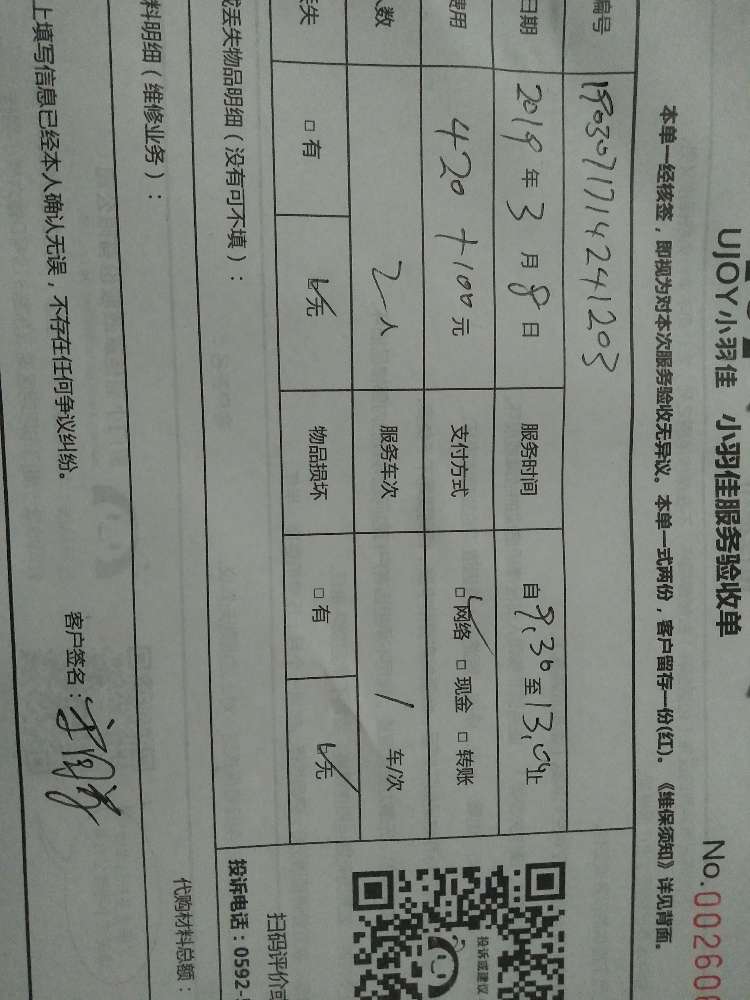 UJOY小羽佳 小羽佳服务验收单
No.002600
本单一经核签，即视为对本次服务验收无异议。本单一式两份，客户留存一份(红)。《维保须知》详见背面。
编号 190307171424 1203
日期 2019年3月8日 服务时间 自9,30至13,00止
费用 420+100元 支付方式 □网络 □现金 □转账
人数 2人 服务车次 1车/次
丢失 □有 □无 物品损坏 □有 □无
或丢失物品明细（没有可不填）：
投诉或建议
扫码评价或
投诉电话：0592-5
料明细（维修业务）：
代购材料总额：
上填写信息已经本人确认无误，不存在任何争议纠纷。
客户签名：